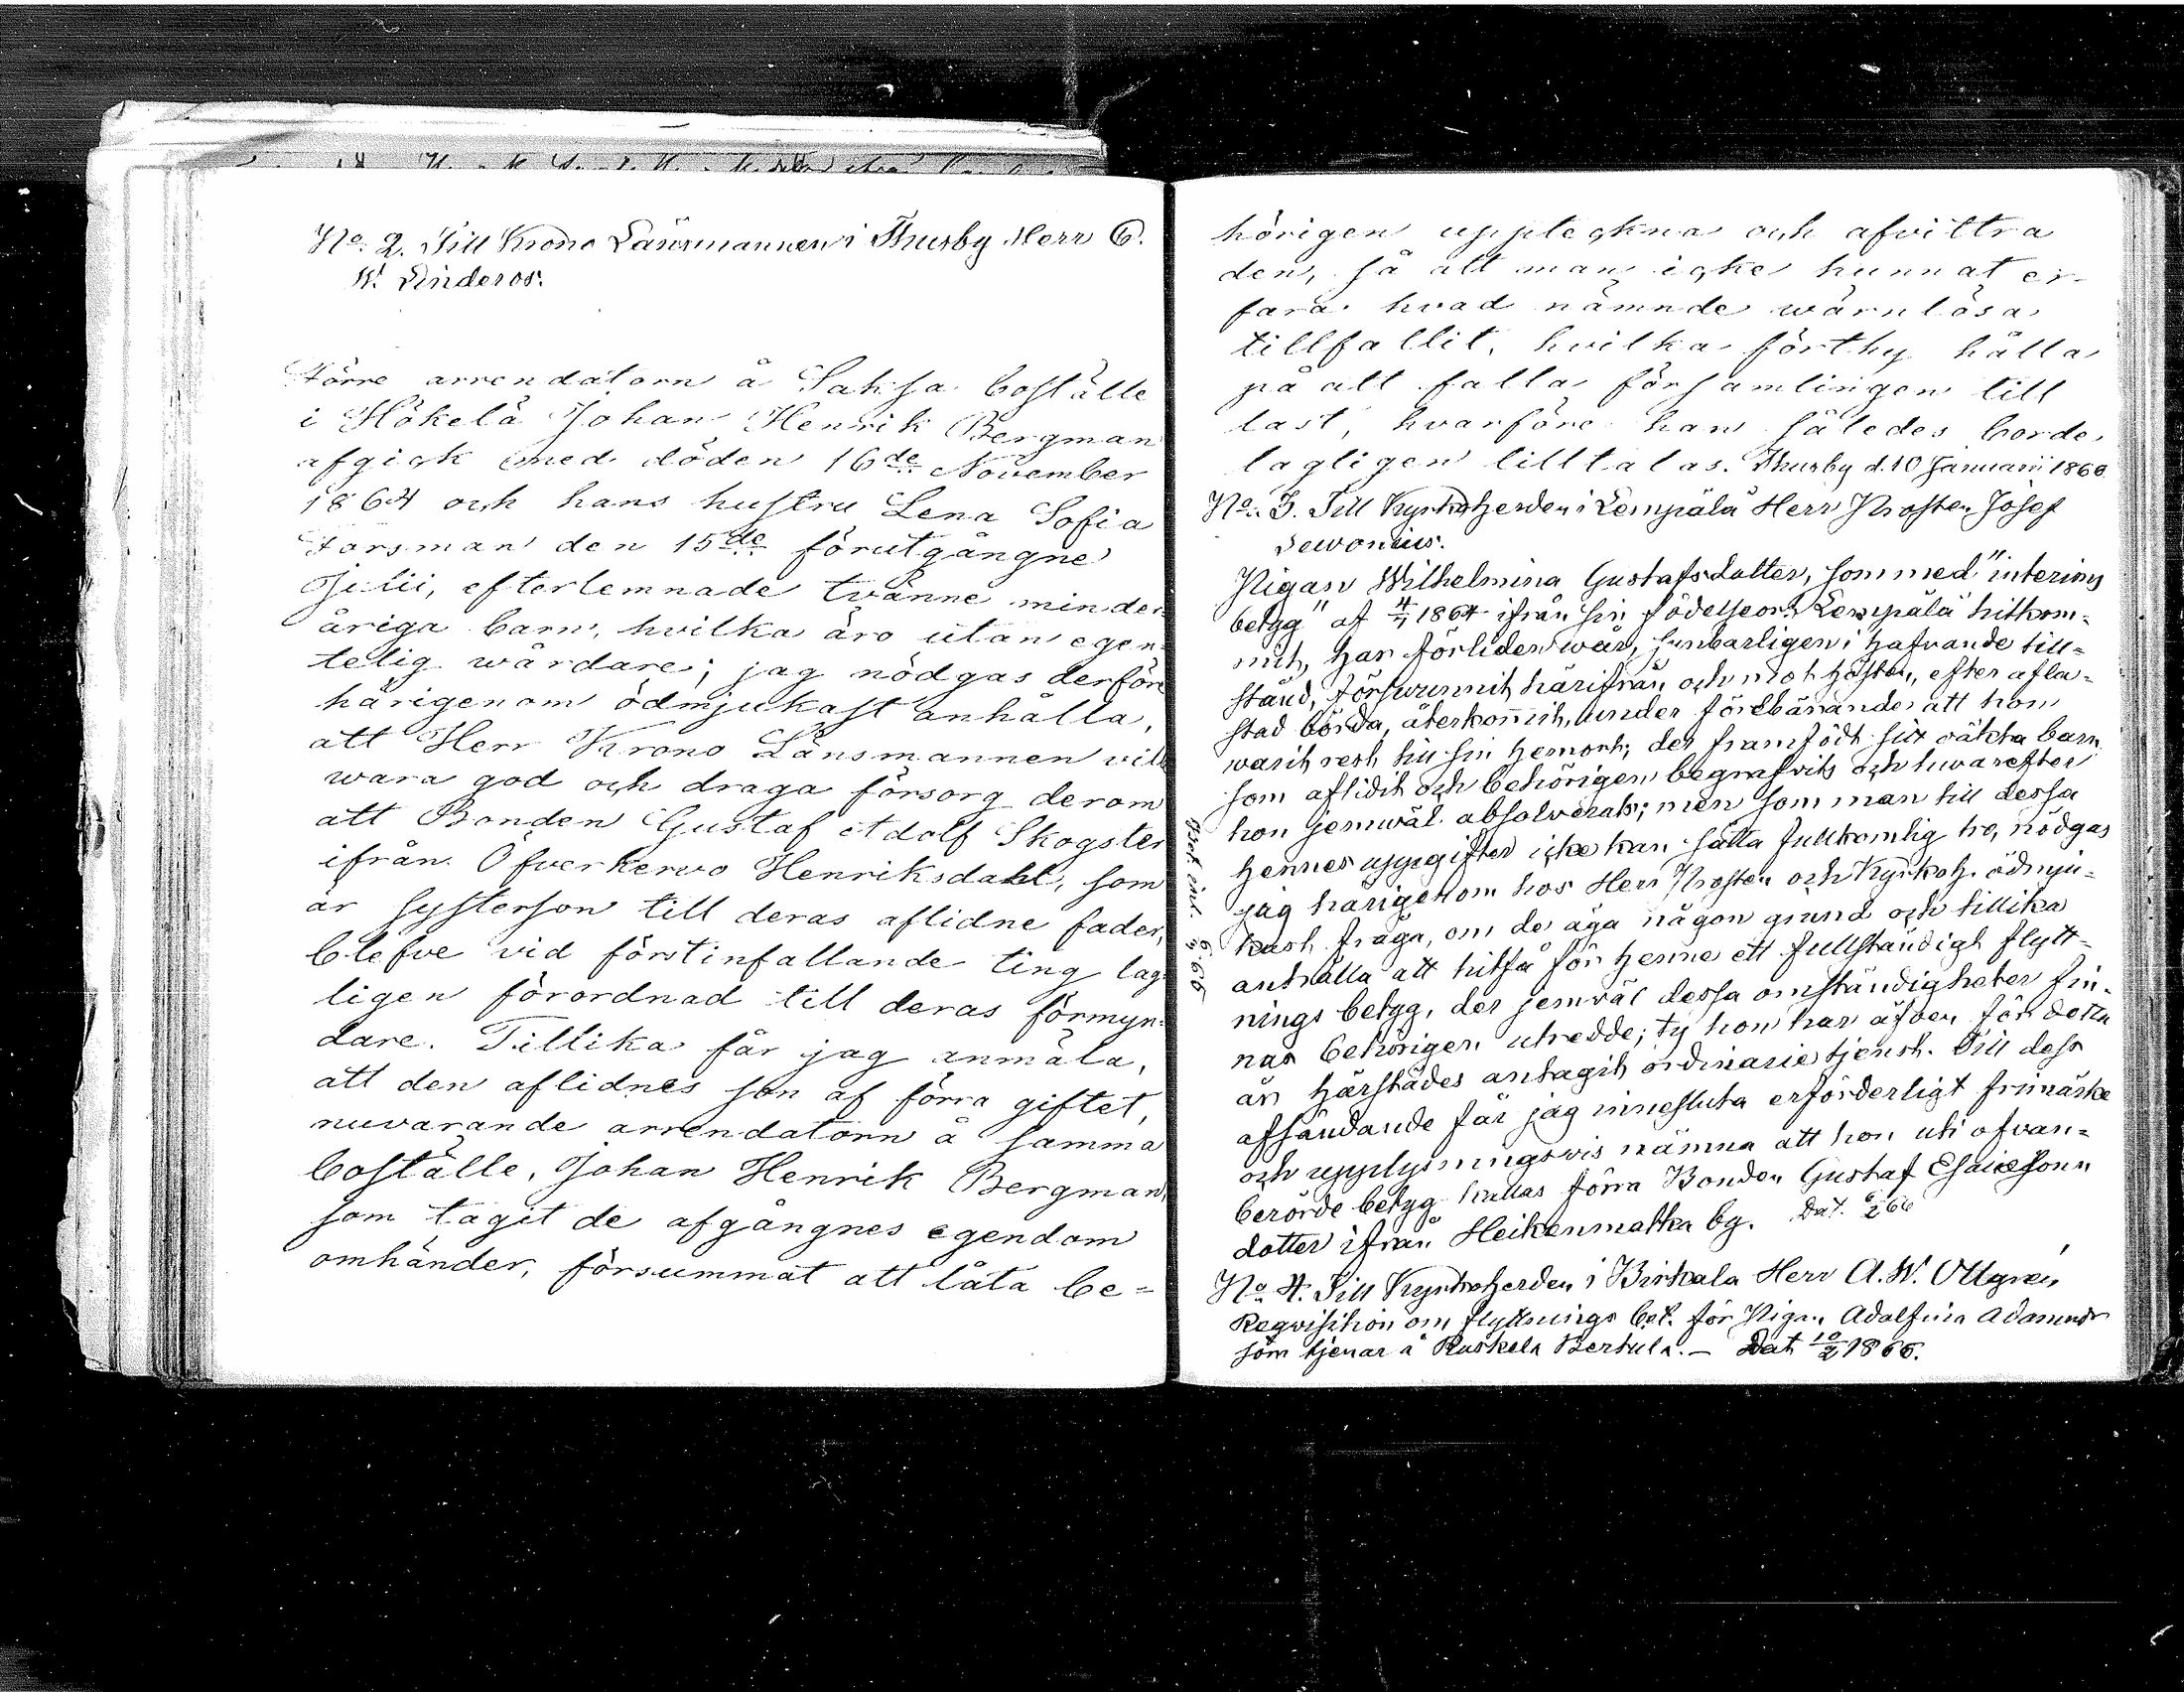 No. 2. Till Krono Länsmannen i Thusby Herr C.
W. Linderos.
Förre arrendatorn å Saksa boställe
i Hökelä Johan Henrik Bergman
afgick med döden 16de November
1864 och hans hustru Lena Sofia
Forsman den 15de förutgångne
Julii, efterlemnade tvänne minder-
åriga barn, hvilka äro utan egen-
telig wårdare; jag nödgas derföre
härigenom ödmjukast anhålla,
att Herr Krono Länsmannen ville
wara god och draga försorg derom
att Bonden Gustaf Adolf Skogster
ifrån Öfverkervo Henriksdahl, som
är systerson till deras aflidne fader,
blefve vid förstinfallande ting lag-
ligen förordnad till deras förmyn-
dare. Tillika får jag anmäla,
att den aflidnes son af förra giftet,
nuvarande arrendatorn å samma
boställe, Johan Henrik Bergman,
som tagit de afgångnes egendom
omhänder, försummat att låta be=
hörigen uppteckna och afvittra
den, så att man icke kunnat er-
fara hvad nämnde wärnlösa
tillfallit, hvilka förthy hålla
på att falla församlingen till
last, hvarföre han således borde
lagligen tilltalas. Thusby d. 10 Januarii 1866
No. 3. Till Kyrkoherden i Lempälä Herr Prosten Josef
Dewonius.
Pigan Wilhelmina Gustafsdotter, som med "interims
betyg" af 4/1 1864 ifrån sin födelseort Lempälä hitkom=
mit, har förliden wår, synbarligen i hafvande till=
stånd, försvunnit härifrån, och mot hösten, efter afla=
stad börda, återkommit, under förebärande att hon
warit rest till sin hemort, der framfödt sitt oäkta barn
som aflidit och behörigen begrafvits och hvarefter
hon jemwäl absolverats; men som man till dessa
hennes uppgifter icke kan sätta fullkomlig tro, nödgas
jag härigenom hos Herr Prosten och Kyrkoh. ödmju=
kast fråga, om de äga någon grund och tillika
anhålla att hitfå för henne ett fullständigt flytt=
nings betyg, der jemväl dessa omständigheter fin-
nas behörigen utredde; ty hon har äfven för detta
år härstädes antagit ordinarie tjenst. Till dess
afsändande får jag innesluta erforderligt frimärke
och upplysningsvis nämna att hon uti ofvan=
berörde betyg kallas förra Bonden Gustaf Esaiæsons
dotter ifrån Heikenmatka by. Dat. 6/2 66
Bet. inl. 6/3 66
No. 4. Till Kyrkoherden i Birkala Herr A. W. Ollgren,
Reqvisition om flyttnings bet. för Pigan Adolfina Adamsdr
som tjenar å Ruskela Bertula. – Dat 10/2 1866.